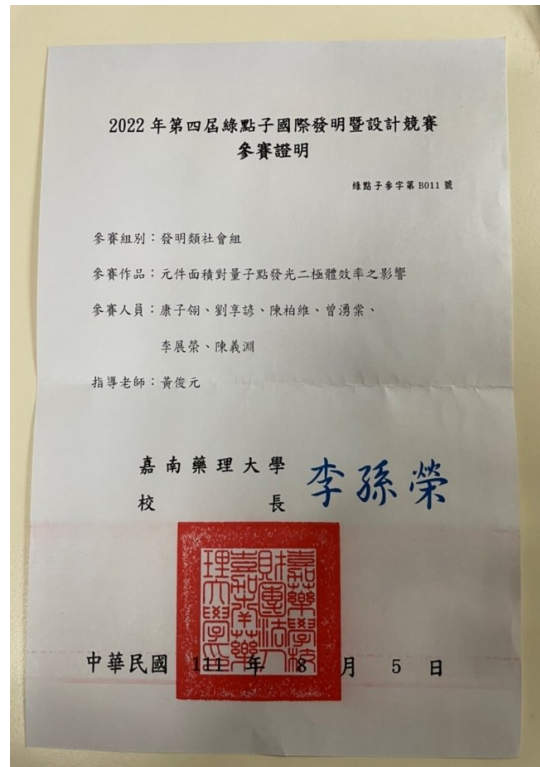 2022 年第四屆綠點子國際發明暨設計競賽
參賽證明
綠點子參字第 B011 號
參賽組別：發明類社會組
參賽作品：元件面積對量子點發光二極體效率之影響
參賽人員：康子翎、劉享諺、陳柏維、曾湧棠、
李展榮、陳義淵
指導老師：黃俊元
嘉南藥理大學
校長
李孫榮
中華民國 111 年 8 月 5 日